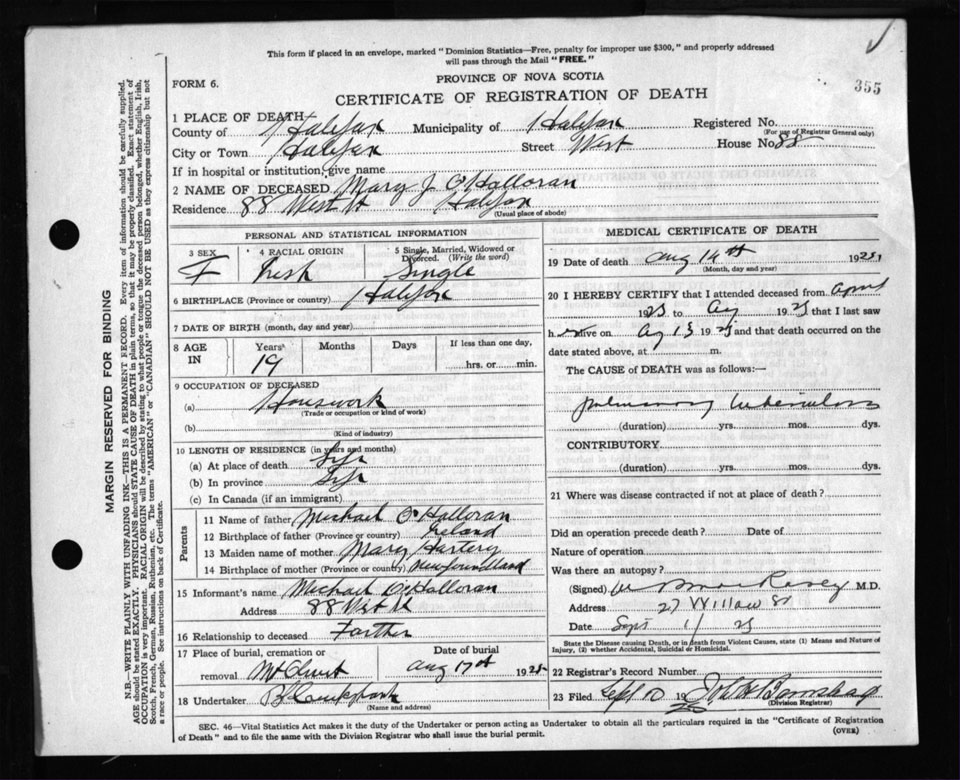 This form if placed in an envelope, marked "Dominion Statistics—Free, penalty for improper use $300," and properly addressed
will pass through the Mail "FREE."
FORM 6.
PROVINCE OF NOVA SCOTIA
355
CERTIFICATE OF REGISTRATION OF DEATH
MARGIN RESERVED FOR BINDING
N.B.—WRITE PLAINLY WITH UNFADING INK—THIS IS A PERMANENT RECORD. Every item of information should be carefully supplied.
AGE should be stated EXACTLY. PHYSICIANS should STATE CAUSE OF DEATH in plain terms, so that it may be properly classified. Exact statement of
OCCUPATION is very important. RACIAL ORIGIN will be described by stating to what people or tongue the deceased person belonged, whether English, Irish,
Scotch, French, German, Russian, Ruthenian, etc. The terms "AMERICAN" or "CANADIAN" SHOULD NOT BE USED as they express citizenship but not
a race or people. See instructions on back of Certificate.
1 PLACE OF DEATH
County of Halifax Municipality of Halifax Registered No.
(For use of Registrar General only)
City or Town Halifax Street West House No. 88
If in hospital or institution, give name
2 NAME OF DECEASED Mary J O'Halloran
Residence 88 West St Halifax
(Usual place of abode)
PERSONAL AND STATISTICAL INFORMATION
3 SEX
F
4 RACIAL ORIGIN
Irish
5 Single, Married, Widowed or
Divorced. (Write the word)
Single
6 BIRTHPLACE (Province or country) Halifax
7 DATE OF BIRTH (month, day and year)
8 AGE IN
Years 19
Months
Days
If less than one day,
hrs. or min.
9 OCCUPATION OF DECEASED
(a) Housework
(Trade or occupation or kind of work)
(b)
(Kind of industry)
10 LENGTH OF RESIDENCE (in years and months)
(a) At place of death Life
(b) In province Life
(c) In Canada (if an immigrant)
Parents
11 Name of father Michael O'Halloran
12 Birthplace of father (Province or country) Ireland
13 Maiden name of mother Mary Hartery
14 Birthplace of mother (Province or country) Newfoundland
15 Informant's name Michael O'Halloran
Address 88 West St
16 Relationship to deceased Farther
17 Place of burial, cremation or
removal Mt Olivet
Date of burial
Aug 17th 1925
18 Undertaker
(Name and address)
MEDICAL CERTIFICATE OF DEATH
19 Date of death Aug 14th 1925
(Month, day and year)
20 I HEREBY CERTIFY that I attended deceased from April
1925 to Aug 1925 that I last saw
her alive on Aug 13 1925 and that death occurred on the
date stated above, at m.
The CAUSE of DEATH was as follows:—
pulmonary tuberculosis
(duration) yrs. mos. dys.
CONTRIBUTORY
(duration) yrs. mos. dys.
21 Where was disease contracted if not at place of death?
Did an operation precede death? Date of
Nature of operation
Was there an autopsy?
(Signed) M.D.
Address 27 Willow St
Date Sept 1/25
State the Disease causing Death, or in death from Violent Causes, state (1) Means and Nature of
Injury, (2) whether Accidental, Suicidal or Homicidal.
22 Registrar's Record Number
23 Filed Sept 10 1925
(Division Registrar)
SEC. 46—Vital Statistics Act makes it the duty of the Undertaker or person acting as Undertaker to obtain all the particulars required in the "Certificate of Registration
of Death" and to file the same with the Division Registrar who shall issue the burial permit.
(OVER)